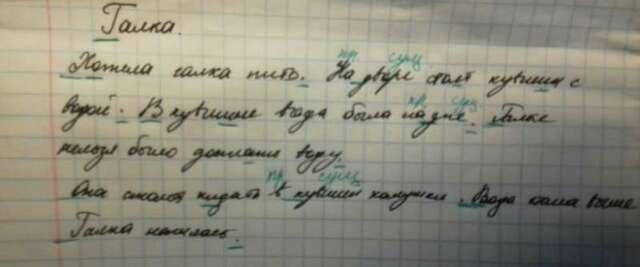 Галка.
Хотела галка пить. На дворе стоял кувшин с
водой. В кувшине вода была на дне. Галке
нельзя было достать воду.
Она стала кидать в кувшин камушки. Вода стала выше
Галка напилась.